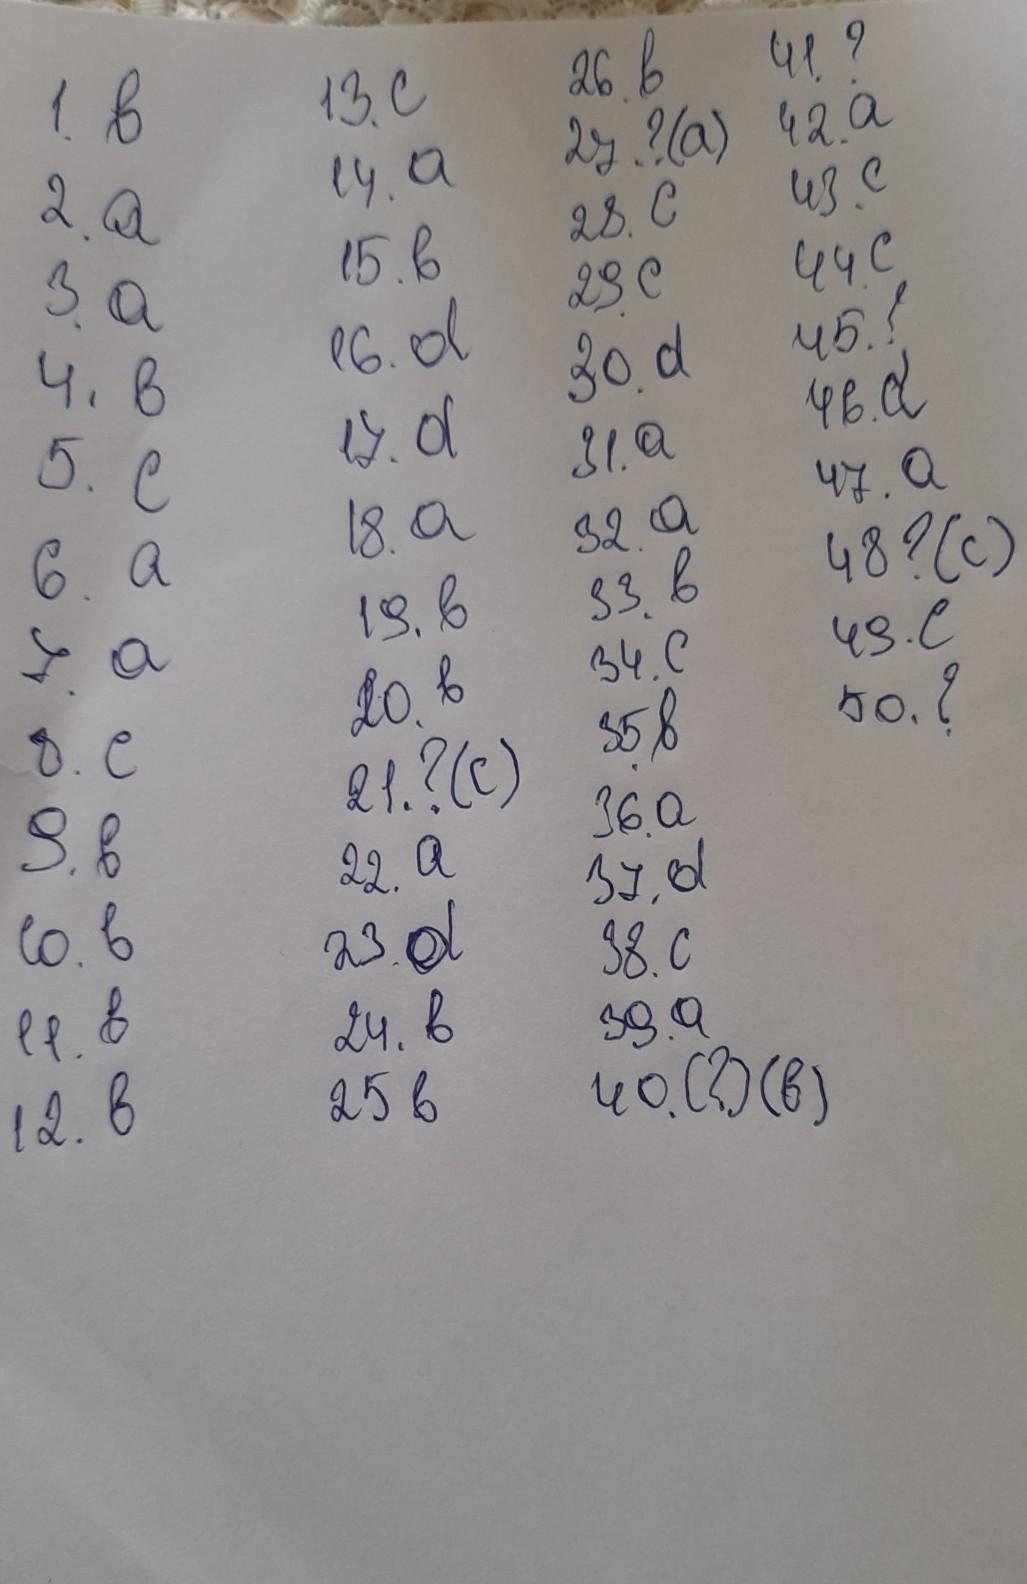 1. b
2. a
3. a
4. b
5. c
6. a
7. a
8. c
9. b
10. b
11. b
12. b
13. c
14. a
15. b
16. d
17. d
18. a
19. b
20. b
21. ? (c)
22. a
23. d
24. b
25 b
26. b
27. ? (a)
28. c
29. c
30. d
31. a
32. a
33. b
34. c
35. b
36. a
37. d
38. c
39. a
40. (?) (b)
41. ?
42. a
43. c
44. c
45. ?
46. d
47. a
48 ? (c)
49. c
50. ?